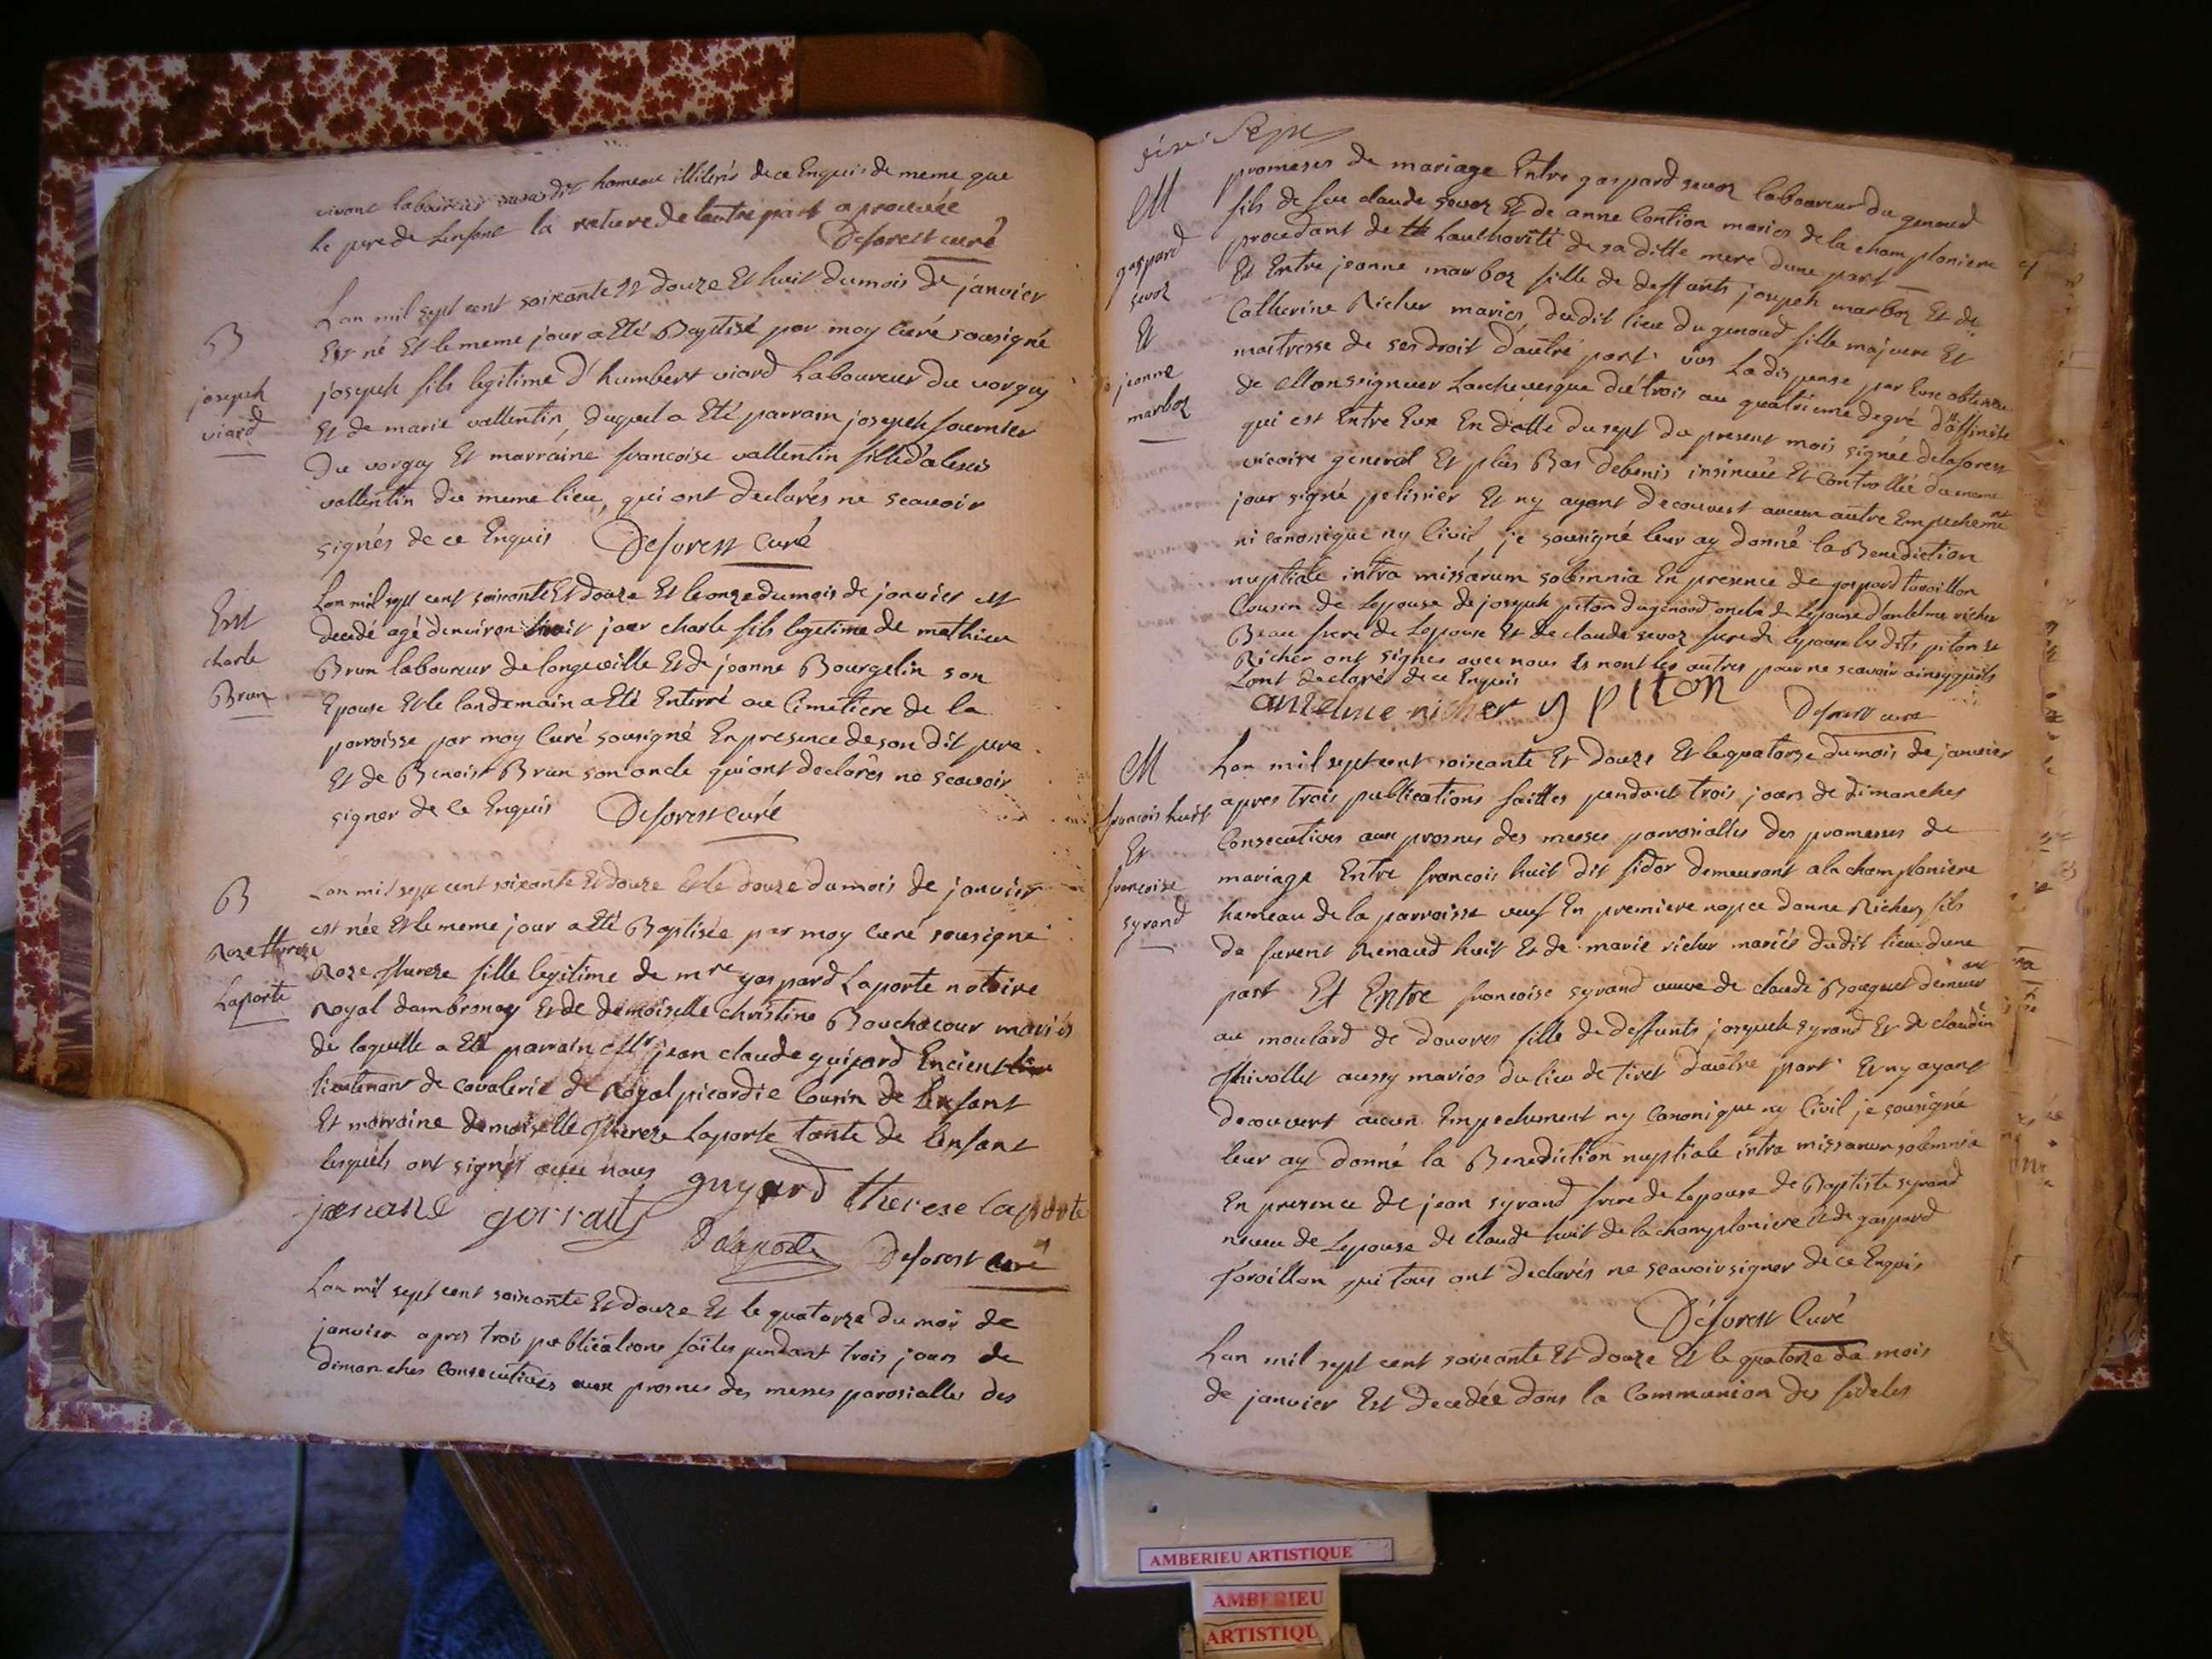 vivant laboureur susdit hameau illiterés de ce Enquis de meme que
le pere de Lenfant la rature de lautre part aprouvée
Deforest curé
Lan mil sept cent soixante Et douze Et huit du mois de janvier
Est né Et le meme jour a Eté Baptisé par moy Curé sousigné
joseph fils legitime d'humbert viard Laboureur du vorgey
Et de marie vallentin, duquel a Eté parrain joseph fournier
Du vorgey Et marraine francoise vallentin fille d'alexis
vallentin du meme lieu, qui ont declarés ne scavoir
signés de ce Enquis Deforest Curé
B
joseph
viard
Lan mil sept cent soixante Et douze Et le onze du mois de janvier est
decedé agé denviron huit jour charle fils legetime de mathieu
Brun laboureur de longeville Et de jeanne Bourgelin son
Epouse Et le landemain a Eté Enterré au Cimetiere de la
parroisse par moy Curé sousigné En presence de son dit pere
Et de Benoist Brun son oncle qui ont declarés ne scavoir
signer de ce Enquis Deforest Curé
Ent
charle
Brun
Lan mil sept cent soixante Et douze Et le douze du mois de janvier
est née Et le meme jour a Eté Baptisée par moy Curé sousigné
Roze therese fille legitime de mre gaspard Laporte notaire
Royal dambronay Et de demoiselle christine Bouchacour mariés
de laquelle a Eté parrain Mr jean claude guijard Encient
lieutenant de cavalerie de Royal picardie Cousin de Lenfant
Et marraine demoiselle therese Laporte tante de Lenfant
lesquels ont signés avec nous guyard therese laporte
B
Roze therese
Laporte
Delaporte Deforest curé
Lan mil sept cent soixante Et douze Et le quatorze du moi de
janvier apres trois publications faites pendant trois jours de
dimanches Consecutives aux prosnes des messes parosialles des
promeses de mariage Entre gaspard sevoz laboureur du genoud
fils de feu claude sevoz Et de anne Contion mariés de la champloniere
procedant de Lauthorité de sa ditte mere dune part
Et Entre jeanne marboz fille de deffunts joseph marboz Et de
Catherine Richer mariés dudit lieu du genoud fille majeure Et
maitresse de ses droit dautre part vus La dispense par Eux obtenue
de Monseigneur Larchevesque du trois au quatrieme degré daffinité
qui est Entre Eux En datte du sept du present mois signée delaforest
vicaire general Et plus Bas debenis insinuée Et Controllée du meme
jour signé pelissier Et ny ayant decouvert aucun autre Empechement
ni canonique ny Civil, je sousigné leur ay donné la Benediction
nuptiale intra missarum solemnia En presence de gaspard tavoillon
Cousin de Lepouse de joseph piton du genoud oncle de Lepouse d'antelme richer
Beau frere de Lepouse Et de claude sevoz frere de lepoux les dits piton Et
Richer ont signés avec nous Et non les autres pour ne scavoir ainsy quils
Lont declarés de ce Enquis
anzelme richer j piton
Deforest curé
M
gaspard
sevoz
Et
jeanne
marboz
Lan mil sept cent soixante Et douze Et le quatorze du mois de janvier
apres trois publications faittes pendant trois jours de dimanches
Consecutives aux prosnes des messes parrosialles des promesses de
mariage Entre francois huit dit fidor demeurant a la champloniere
hameau de la parroisse veuf En premiere nopce danne Richer fils
de furent Renaud huit Et de marie richer mariés dudit lieu dune
part Et Entre francoise syrand veuve de claude Bouguet demeurant
au moulard de douvres fille de deffunts joseph syrand Et de claudine
thivollet aussy mariés du lieu de tiret dautre part Et ny ayant
decouvert aucun Empechement ny Canonique ny Civil je sousigné
leur ay donné la Benediction nuptiale intra missarum solemnia
En presence de jean syrand frere de Lepouse de Baptiste syrand
neveu de Lepouse de claude huit de la champloniere Et de gaspard
tavoillon qui tous ont declarés ne scavoir signer de ce Enquis
Deforest Curé
M
francois huit
Et
francoise
syrand
Lan mil sept cent soixante Et douze Et le quatorze du mois
de janvier Est decedée dans la Communion des fideles
AMBERIEU ARTISTIQUE
AMBERIEU
ARTISTIQU